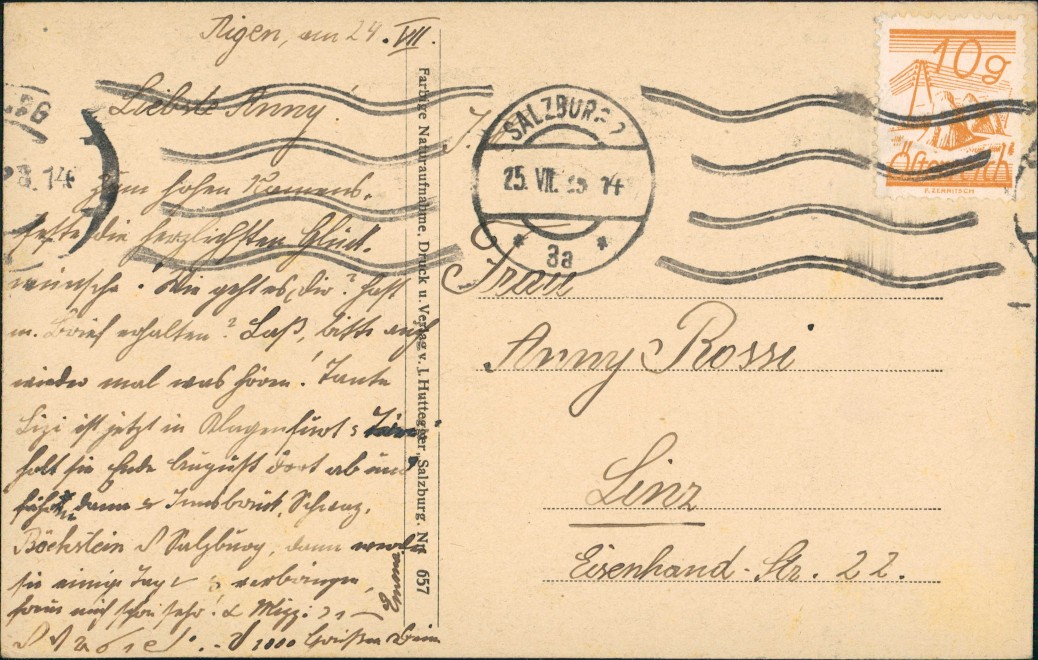 Aigen, am 24. VII.
Liebste Anny!
Zum hohen Namens-
feste die herzlichsten Glück-
wünsche! Wie geht es dir? Hast
m. Brief erhalten? Laß, bitte auch
wieder mal was hören! Tante
Lizi ist jetzt in Klagenfurt
holt sie Ende August dort ab und
fährt dann Innsbruck, Schwaz,
Böckstein Salzburg, dann
sie einige Tage verbringen,
freue mich schon sehr!
1000 Grüßen Deine
Emmi
Farbige Naturaufnahme, Druck u. Verlag v. J. Huttegger, Salzburg. Nr. 657
SALZBURG 2
25. VII. 25 14
* 3a *
LBG
14
10g
Österreich
F. ZERRITSCH
Frau
Anny Rossi
Linz
Eisenhand-Str. 22.